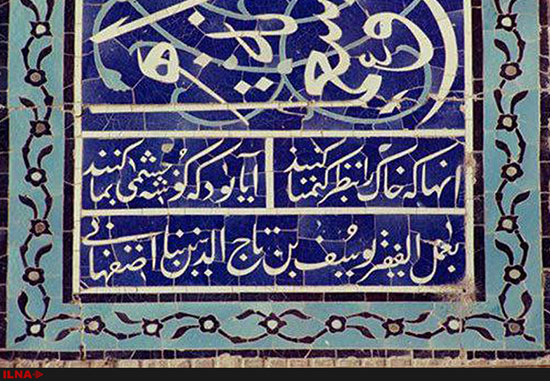 انها که خاک را بنظر کیمیا کنند
آیا بود که گوشه چشمی بما کنند
بعمل الفقیر یوسف بن تاج الدین بنا اصفهانی
ILNA